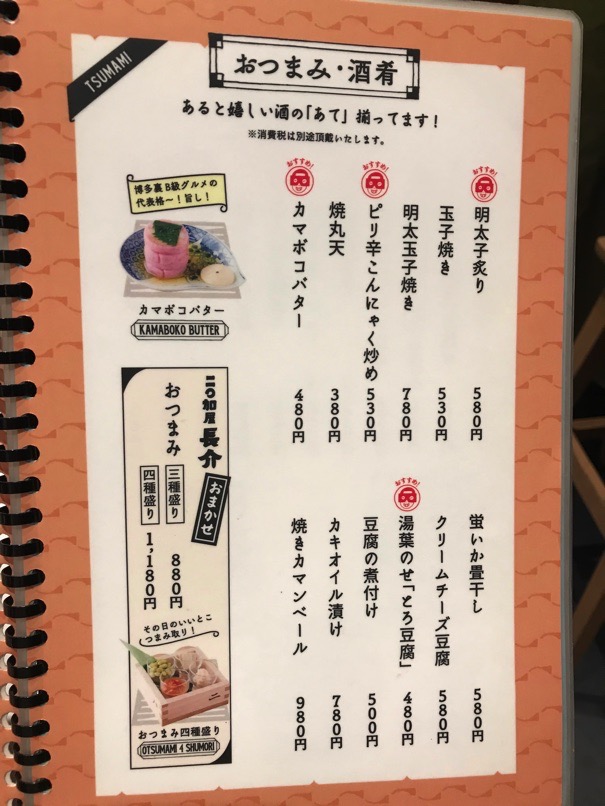 TSUMAMI
おつまみ・酒肴
あると嬉しい酒の「あて」揃ってます！
※消費税は別途頂戴いたします。
おすすめ！
明太子炙り 580円
玉子焼き 530円
明太玉子焼き 780円
おすすめ！
ピリ辛こんにゃく炒め 530円
焼丸天 380円
おすすめ！
カマボコバター 480円
蛍いか畳干し 580円
クリームチーズ豆腐 580円
おすすめ！
湯葉のせ「とろ豆腐」 480円
豆腐の煮付け 500円
カキオイル漬け 780円
焼きカマンベール 980円
博多裏B級グルメの
代表格〜！旨し！
カマボコバター
KAMABOKO BUTTER
二〇加屋長介
おまかせ
おつまみ
三種盛り 880円
四種盛り 1,180円
その日のいいとこ
つまみ取り！
おつまみ四種盛り
OTSUMAMI 4 SHUMORI